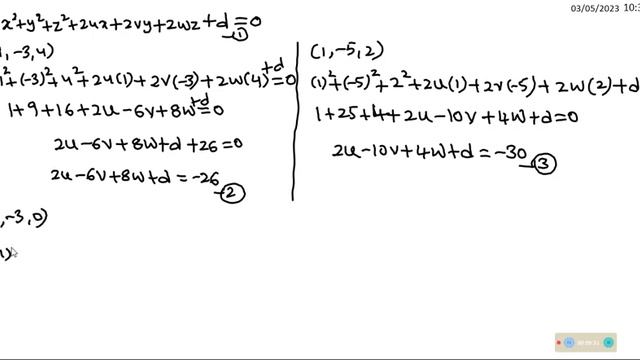 03/05/2023 10:3
x²+y²+z²+2ux+2vy+2wz+d=0
①
,-3,4)
1²+(-3)²+4²+2u(1)+2v(-3)+2w(4)+d=0
1+9+16+2u-6v+8w+d=0
2u-6v+8w+d+26=0
2u-6v+8w+d=-26
②
,-3,0)
1)
(1,-5,2)
(1)²+(-5)²+2²+2u(1)+2v(-5)+2w(2)+d
1+25+4+2u-10v+4w+d=0
2u-10v+4w+d=-30
③